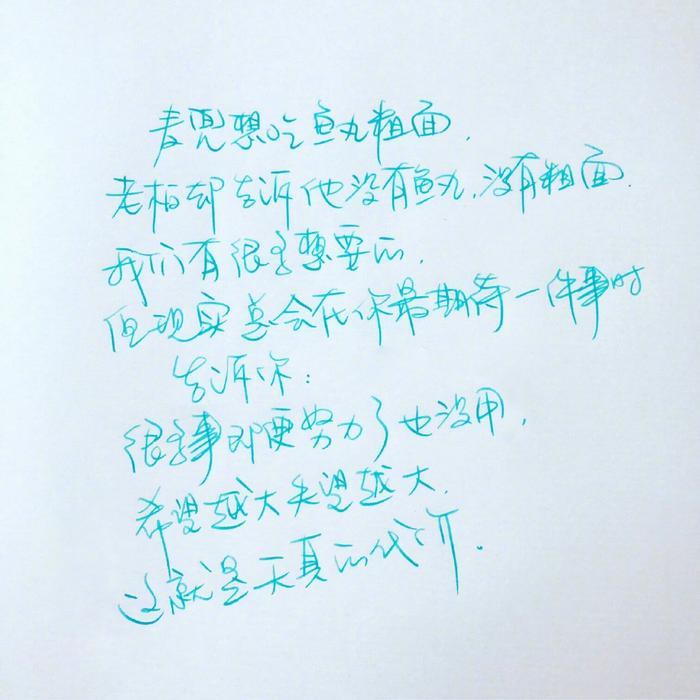 麦兜想吃鱼丸粗面，
老板却告诉他没有鱼丸，没有粗面．
我们有很多想要的，
但现实总会在你最期待一件事时
告诉你：
很多事即便努力了也没用，
希望越大失望越大，
这就是天真的代价．